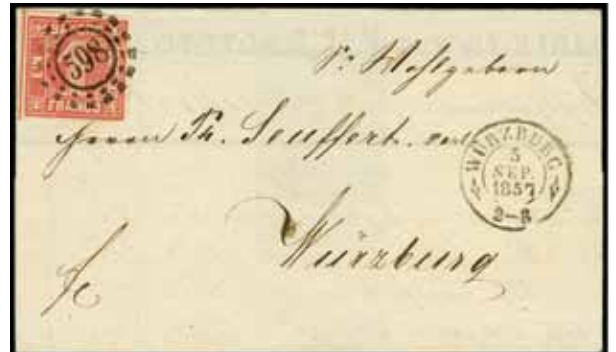 598
Sr. Wohlgeborn
Herrn Seuffert
WÜRZBURG
5
SEP.
1857
2–3
Würzburg